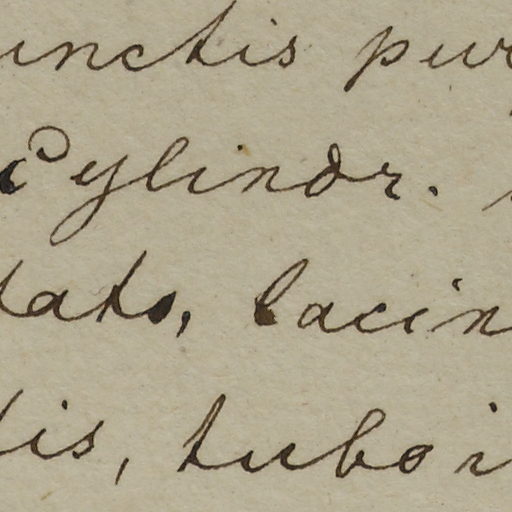 unctis pur
Cylindr.
tato, lacin
tis, tubo i